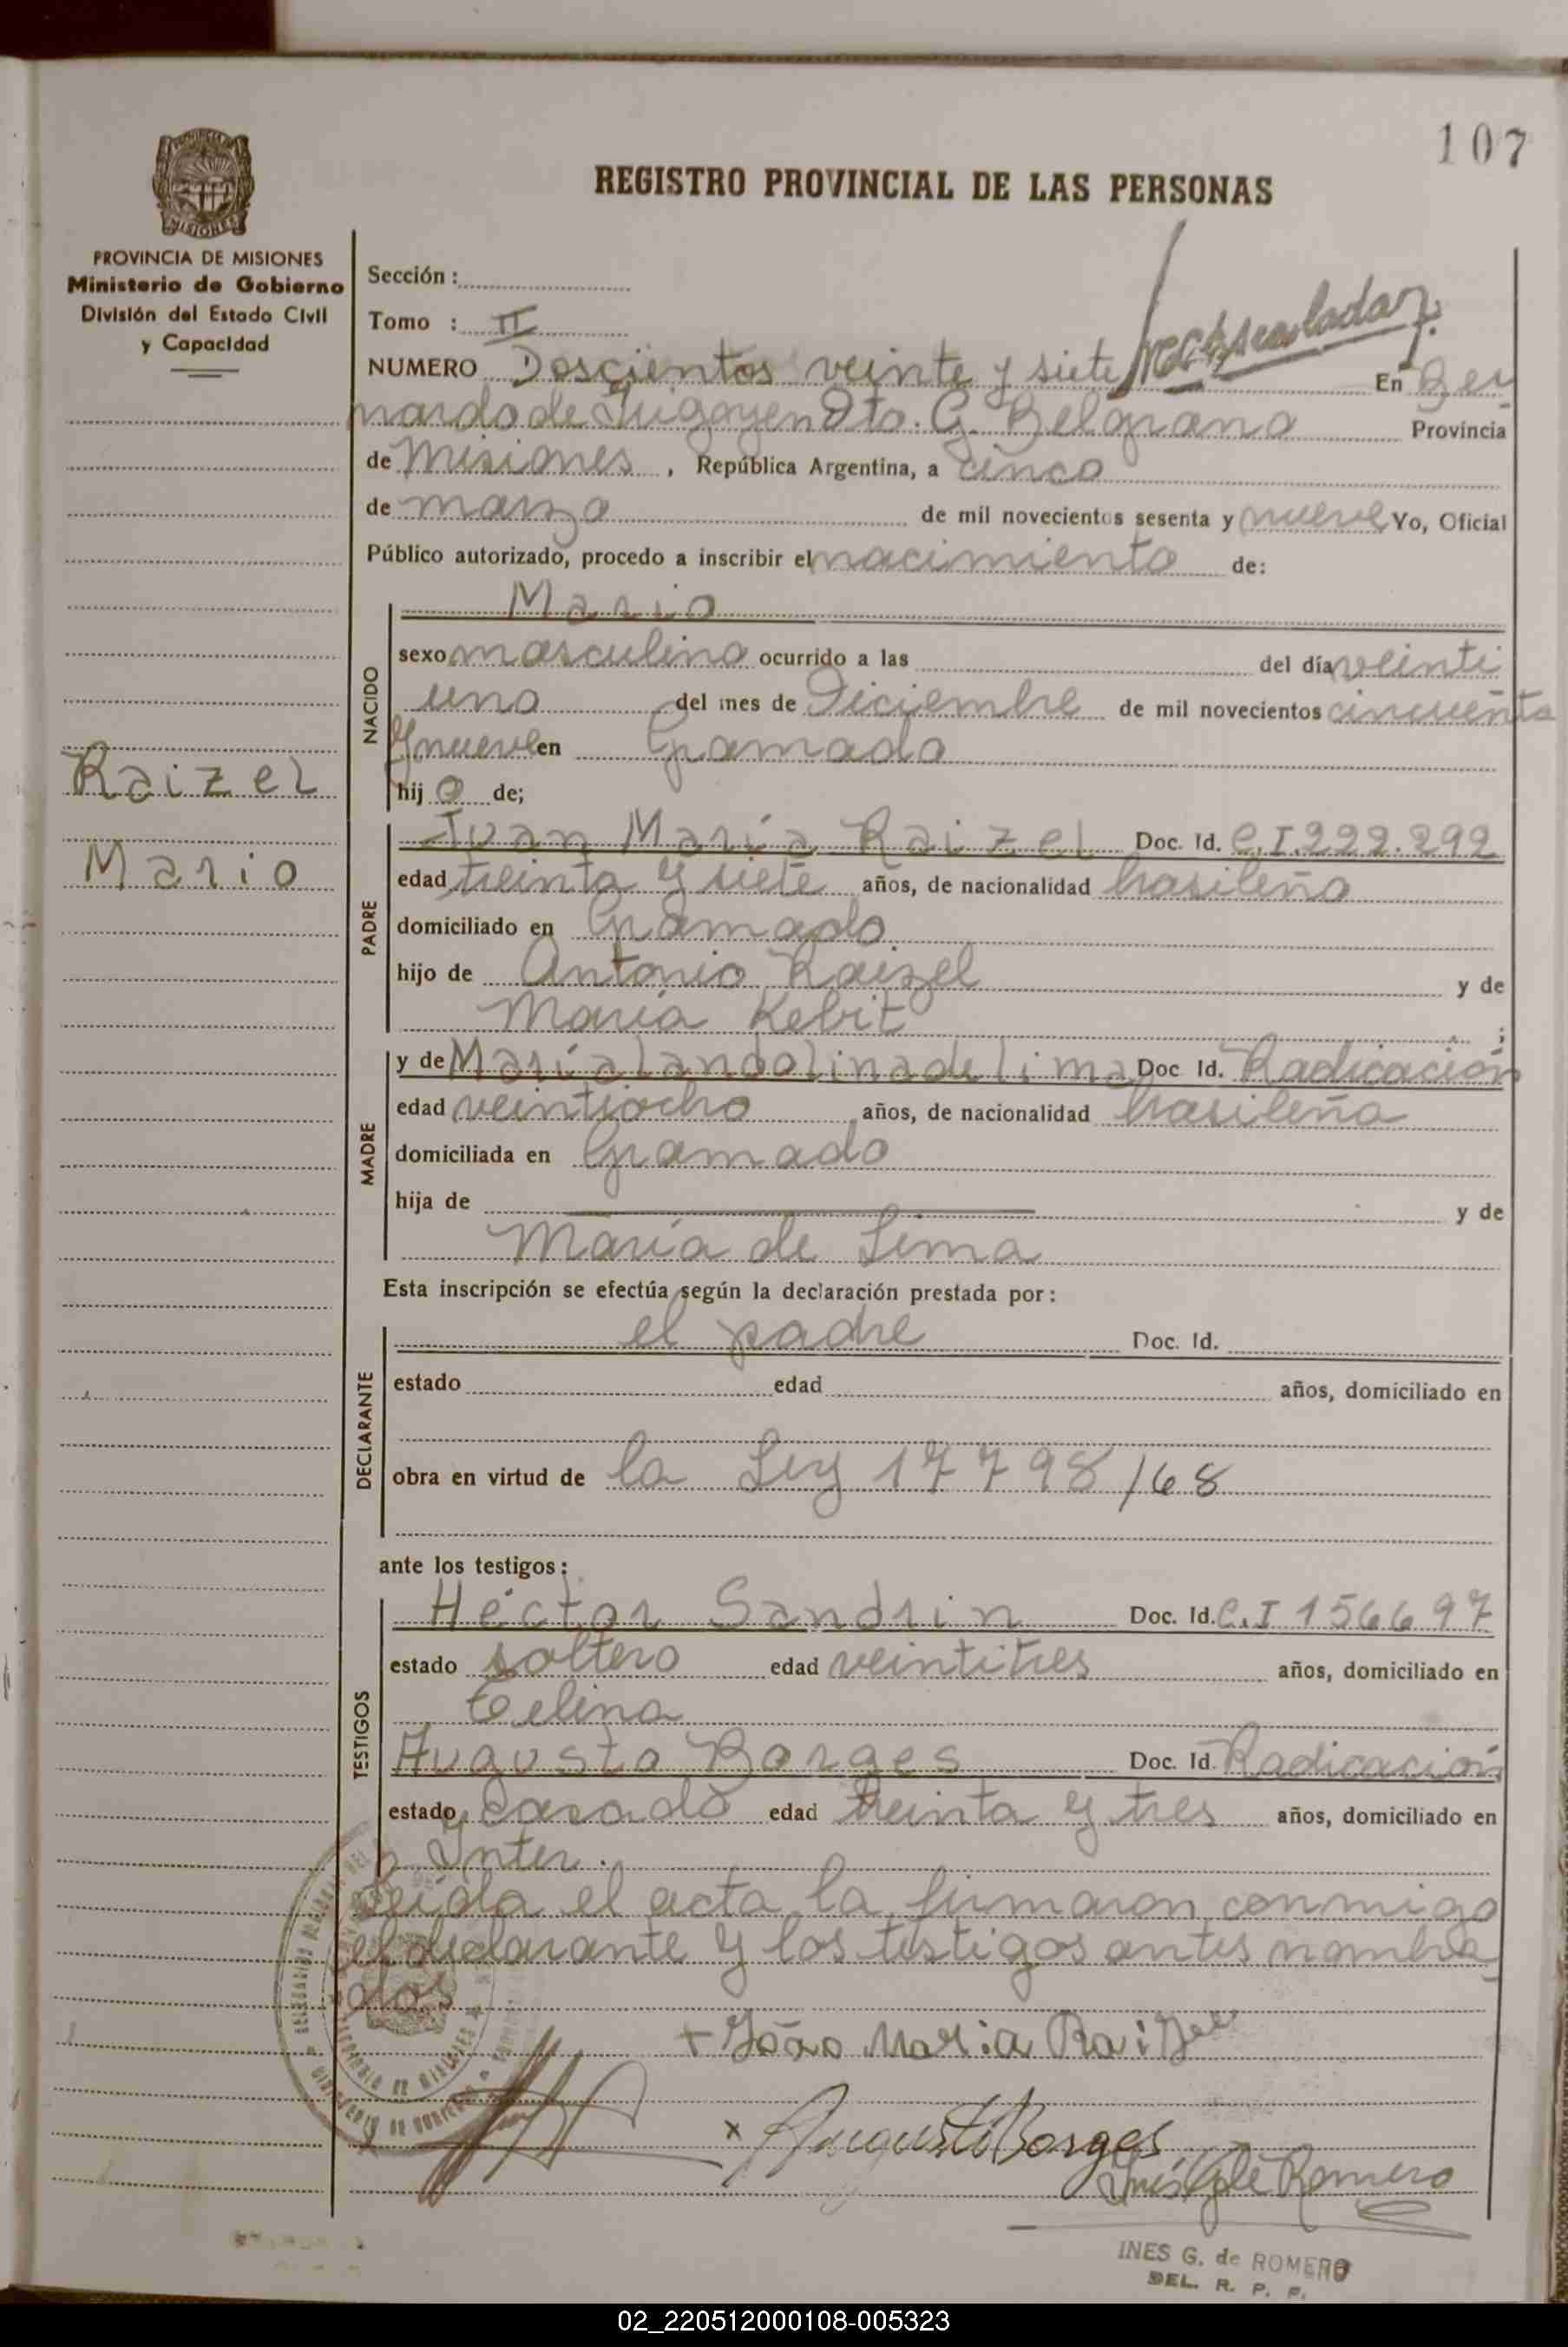 107
REGISTRO PROVINCIAL DE LAS PERSONAS
PROVINCIA DE MISIONES
Ministerio de Gobierno
División del Estado Civil
y Capacidad
Sección :
Tomo : II
NUMERO Doscientos veinte y siete En Ber
nardo de Irigoyen Dto. G. Belgrano Provincia
de Misiones, República Argentina, a cinco
de marzo de mil novecientos sesenta y nueve Yo, Oficial
Público autorizado, procedo a inscribir el nacimiento de:
Mario
NACIDO
sexo masculino ocurrido a las del día veinti
uno del mes de Diciembre de mil novecientos cincuenta
y nueve en Gramado
hijo de;
Raizel
Mario
PADRE
Juan María Raizel Doc. Id. C.I. 222.292
edad treinta y siete años, de nacionalidad brasileño
domiciliado en Gramado
hijo de Antonio Raizel y de
María Kebit ;
MADRE
y de María landolina de lima Doc Id. Radicación
edad veintiocho años, de nacionalidad brasileña
domiciliada en Gramado
hija de y de
María de Lima
Esta inscripción se efectúa según la declaración prestada por :
DECLARANTE
el padre Doc. Id.
estado edad años, domiciliado en
obra en virtud de la Ley 17798/68
ante los testigos :
TESTIGOS
Héctor Sandrin Doc. Id. C.I 156697
estado soltero edad veintitres años, domiciliado en
Celina
Augusto Borges Doc. Id. Radicación
estado Casado edad treinta y tres años, domiciliado en
Inter.
Leída el acta la firmaron conmigo
el declarante y los testigos antes nombra
dos
+ João Maria Raizel
x Augusto Borges
Romero
INES G. de ROMERO
DEL. R. P. P.
02_220512000108-005323